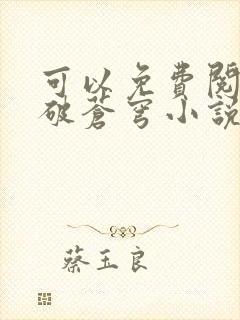 可以免費閱
破蒼穹小說
蔡玉良